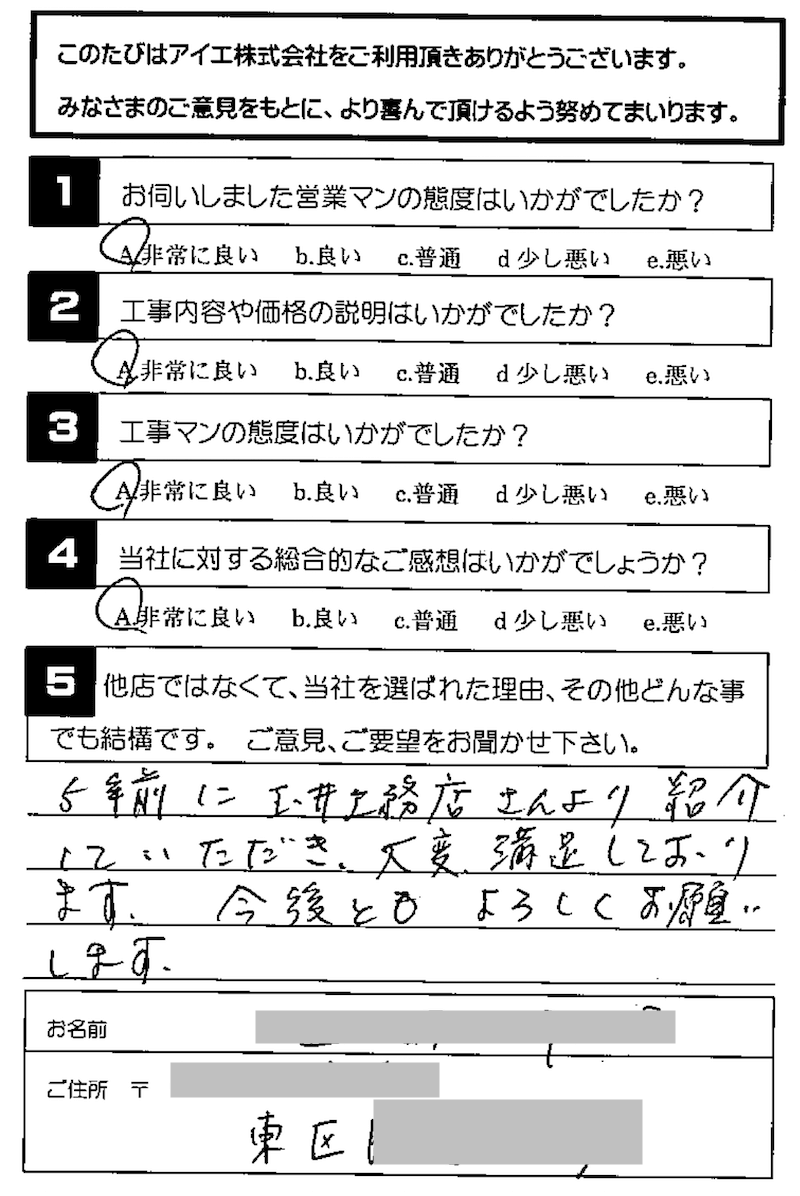 このたびはアイエ株式会社をご利用頂きありがとうございます。
みなさまのご意見をもとに、より喜んで頂けるよう努めてまいります。
1 お伺いしました営業マンの態度はいかがでしたか？
A.非常に良い b.良い c.普通 d 少し悪い e.悪い
2 工事内容や価格の説明はいかがでしたか？
A.非常に良い b.良い c.普通 d 少し悪い e.悪い
3 工事マンの態度はいかがでしたか？
A.非常に良い b.良い c.普通 d 少し悪い e.悪い
4 当社に対する総合的なご感想はいかがでしょうか？
A.非常に良い b.良い c.普通 d 少し悪い e.悪い
5 他店ではなくて、当社を選ばれた理由、その他どんな事
でも結構です。 ご意見、ご要望をお聞かせ下さい。
5年前に玉井工務店さんより紹介
していただき、大変満足しており
ます。 今後ともよろしくお願い
します。
お名前
ご住所 〒
東区